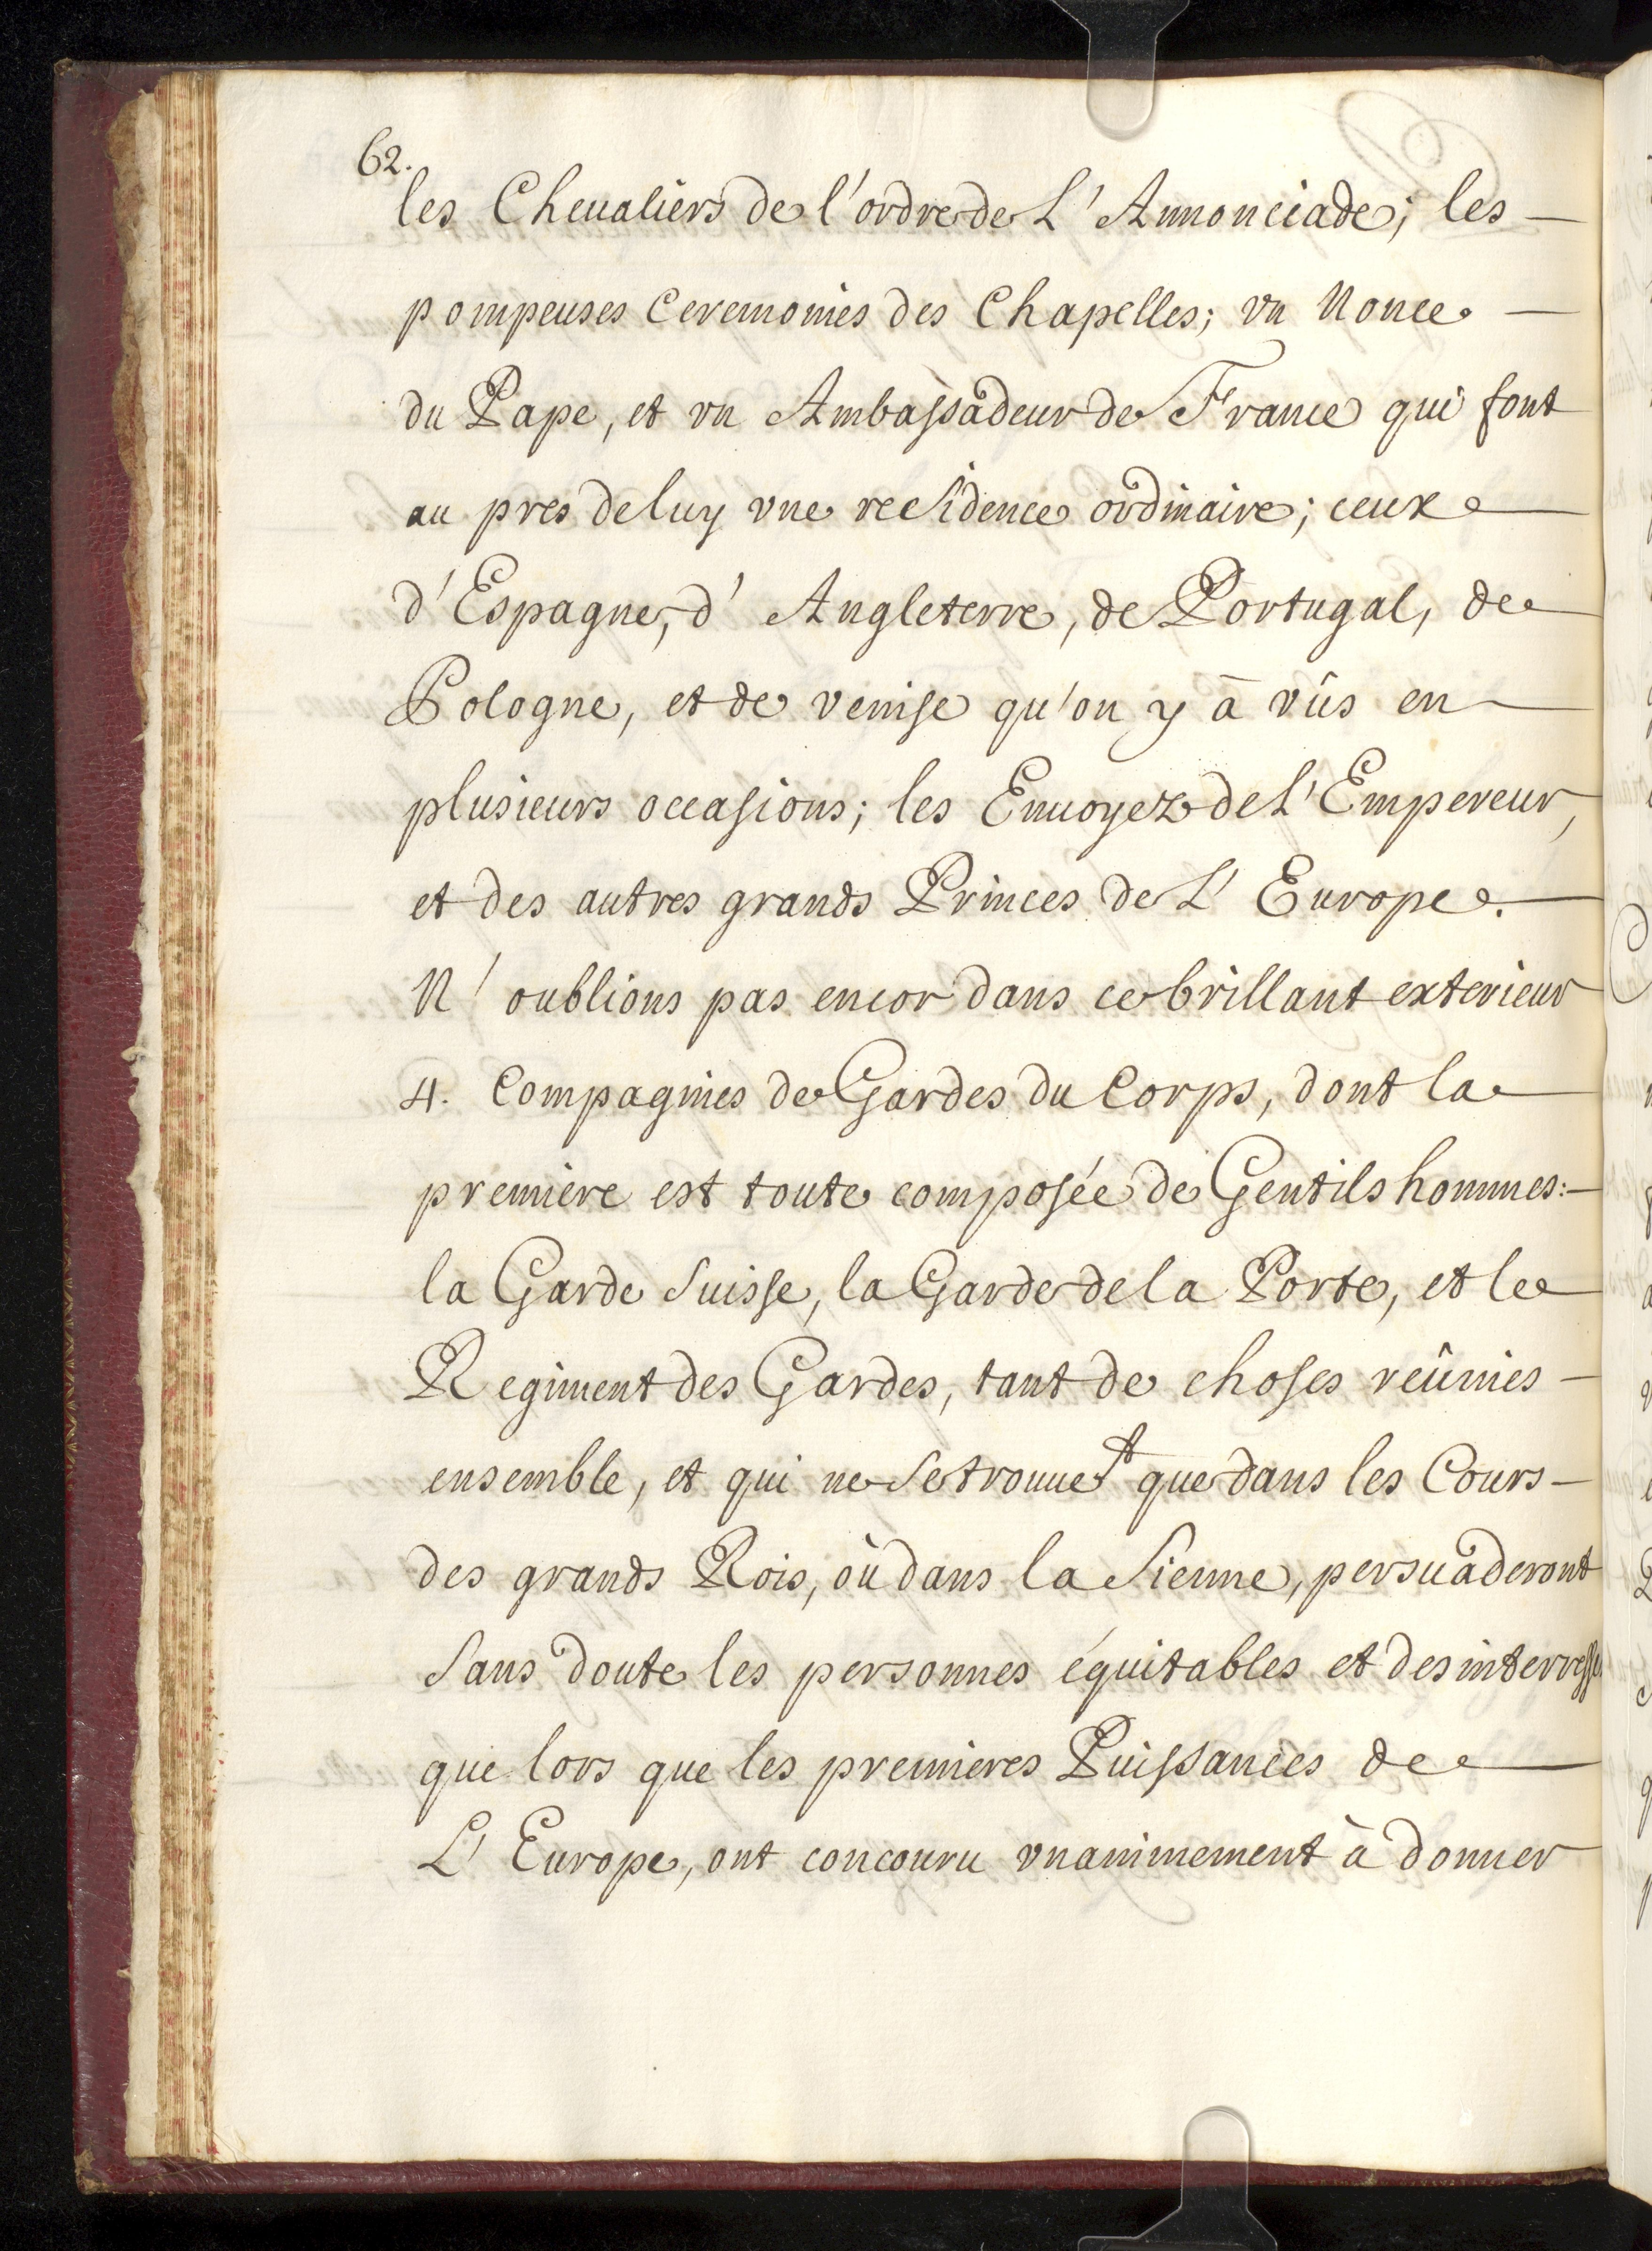 62.
les Cheualiers de l'ordre de L'Annonciade; les
pompeuses Ceremonies des Chapelles; vn Nonce
du Pape, et vn Ambassadeur de France qui font
au pres de luy vne residence ordinaire; ceux
d'Espagne, d'Angleterre, de Portugal, de
Pologne, et de venise qu'on y à vûs en
plusieurs occasions; les Enuoyez de L'Empereur,
et des autres grands Princes de L'Europe.
N'oublions pas encor dans ce brillant exterieur
4. Compagnies de Gardes du Corps, dont la
premiere est toute composée de Gentilshommes:
la Garde Suisse, la Garde de la Porte, et le
Regiment des Gardes, tant de choses reûnies
ensemble, et qui ne se trouuet que dans les Cours
des grands Rois, où dans la Sienne, persuaderont
Sans doute les personnes équitables et
que lors que les premieres Puissances de
L'Europe, ont concouru vnanimement à donner